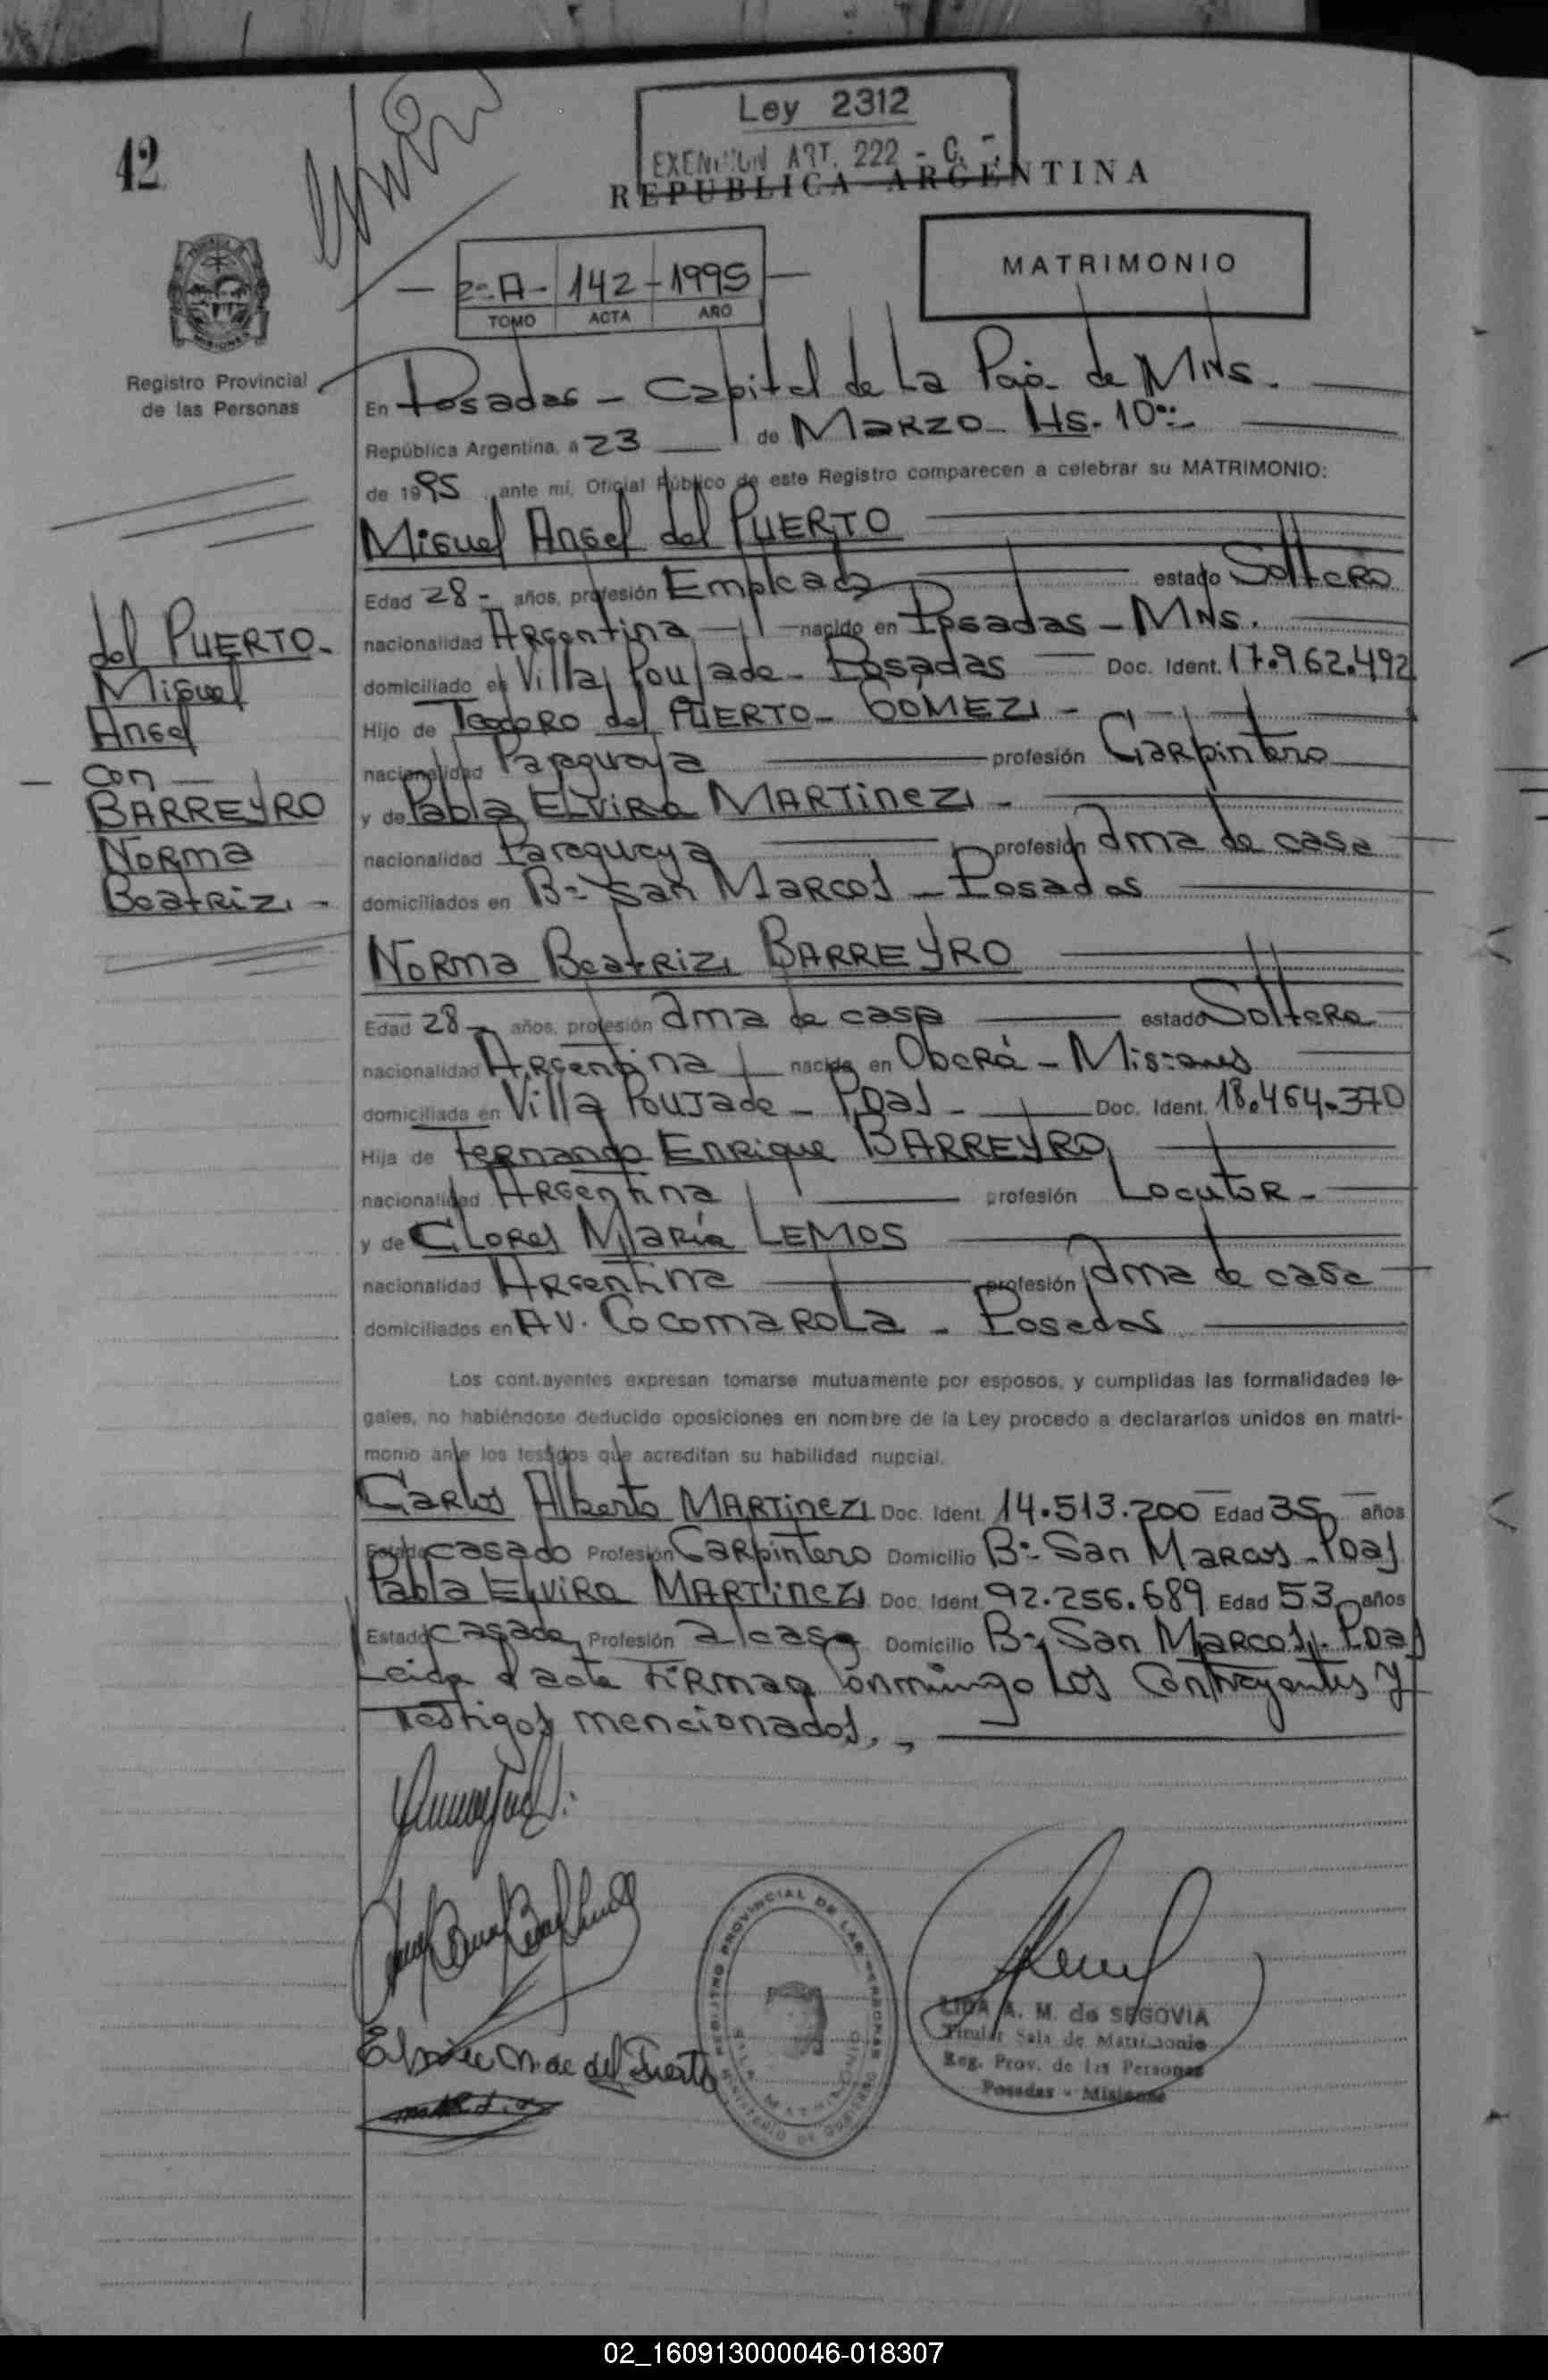 42
Ley 2312
EXENCION ART. 222 - C.
REPUBLICA ARGENTINA
MATRIMONIO
2º-A- 142 - 1995
TOMO ACTA AÑO
MISIONES
Registro Provincial
de las Personas
En Posadas - Capital de La Pcia de MNS.
República Argentina, a 23 de MARZO Hs. 10
de 1995 ante mí, Oficial Público de este Registro comparecen a celebrar su MATRIMONIO:
Miguel Angel del PUERTO
Edad 28 - años, profesión Empleado estado Soltero
nacionalidad Argentina nacido en Posadas - MNS.
domiciliado en Villa Poujade - Posadas Doc. Ident. 17.962.492
Hijo de Teodoro del PUERTO - GOMEZ -
nacionalidad Paraguaya profesión Carpintero
y de Pabla ELVIRA MARTINEZ -
nacionalidad Paraguaya profesión ama de casa
domiciliados en Bº San Marcos - Posadas
del PUERTO -
Miguel
Angel
- con -
BARREYRO
Norma
Beatriz -
Norma Beatriz BARREYRO
Edad 28 - años, profesión ama de casa estado Soltera
nacionalidad Argentina nacida en Oberá - Misiones
domiciliada en Villa Poujade - Pdas - Doc. Ident. 18.464.370
Hija de Fernando Enrique BARREYRO
nacionalidad Argentina profesión Locutor -
y de Clores María LEMOS
nacionalidad Argentina profesión ama de casa
domiciliados en AV. Cocomarola - Posadas
Los contrayentes expresan tomarse mutuamente por esposos, y cumplidas las formalidades le-
gales, no habiéndose deducido oposiciones en nombre de la Ley procedo a declararlos unidos en matri-
monio ante los testigos que acreditan su habilidad nupcial.
Carlos Alberto MARTINEZ Doc. Ident. 14.513.200 Edad 35 años
Estado casado Profesión Carpintero Domicilio Bº San Marcos - Pdas
Pabla ELVIRA MARTINEZ Doc. Ident. 92.256.689 Edad 53 años
Estado casada Profesión a/casa Domicilio Bº San Marcos - Pdas
Leida el acta FIRMAN conmingo Los Contrayentes y
Testigos mencionados. -
Elvira M. de del Puerto
REGISTRO PROVINCIAL DE LAS PERSONAS
MINISTERIO DE GOBIERNO
SALA MATRIMONIO
LIDA A. M. de SEGOVIA
Titular Sala de Matrimonio
Reg. Prov. de las Personas
Posadas - Misiones
02_160913000046-018307